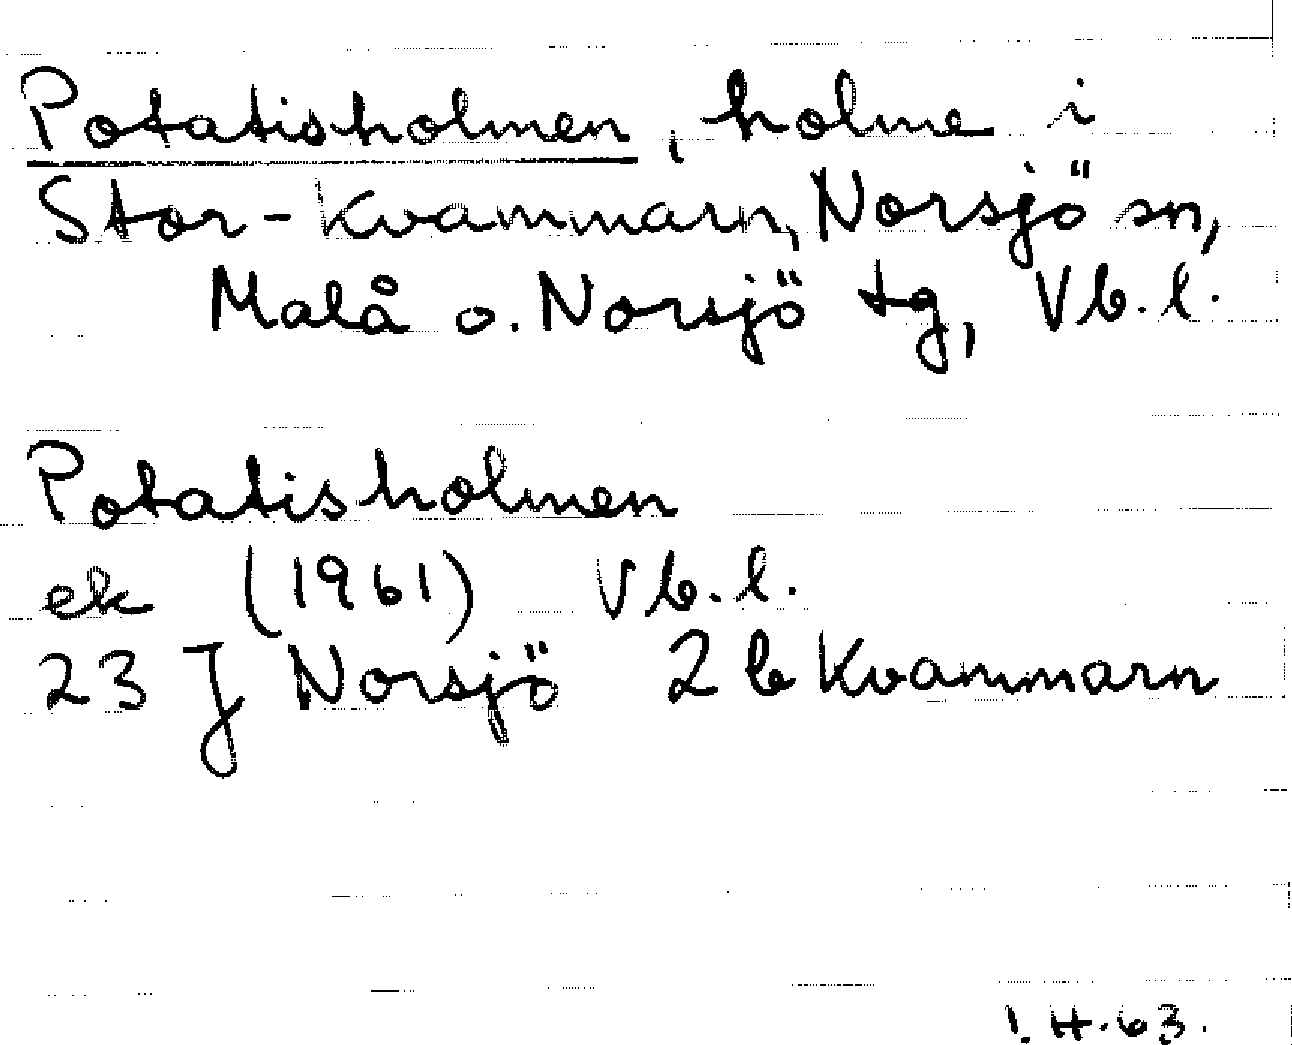 Potatisholmen, holme i
Stor-Kvammarn, Norsjö sn,
Malå o. Norsjö tg, Vb.l.
Potatisholmen
ek (1961) Vb.l.
23 J Norsjö 2b Kvammarn
I.H.63.